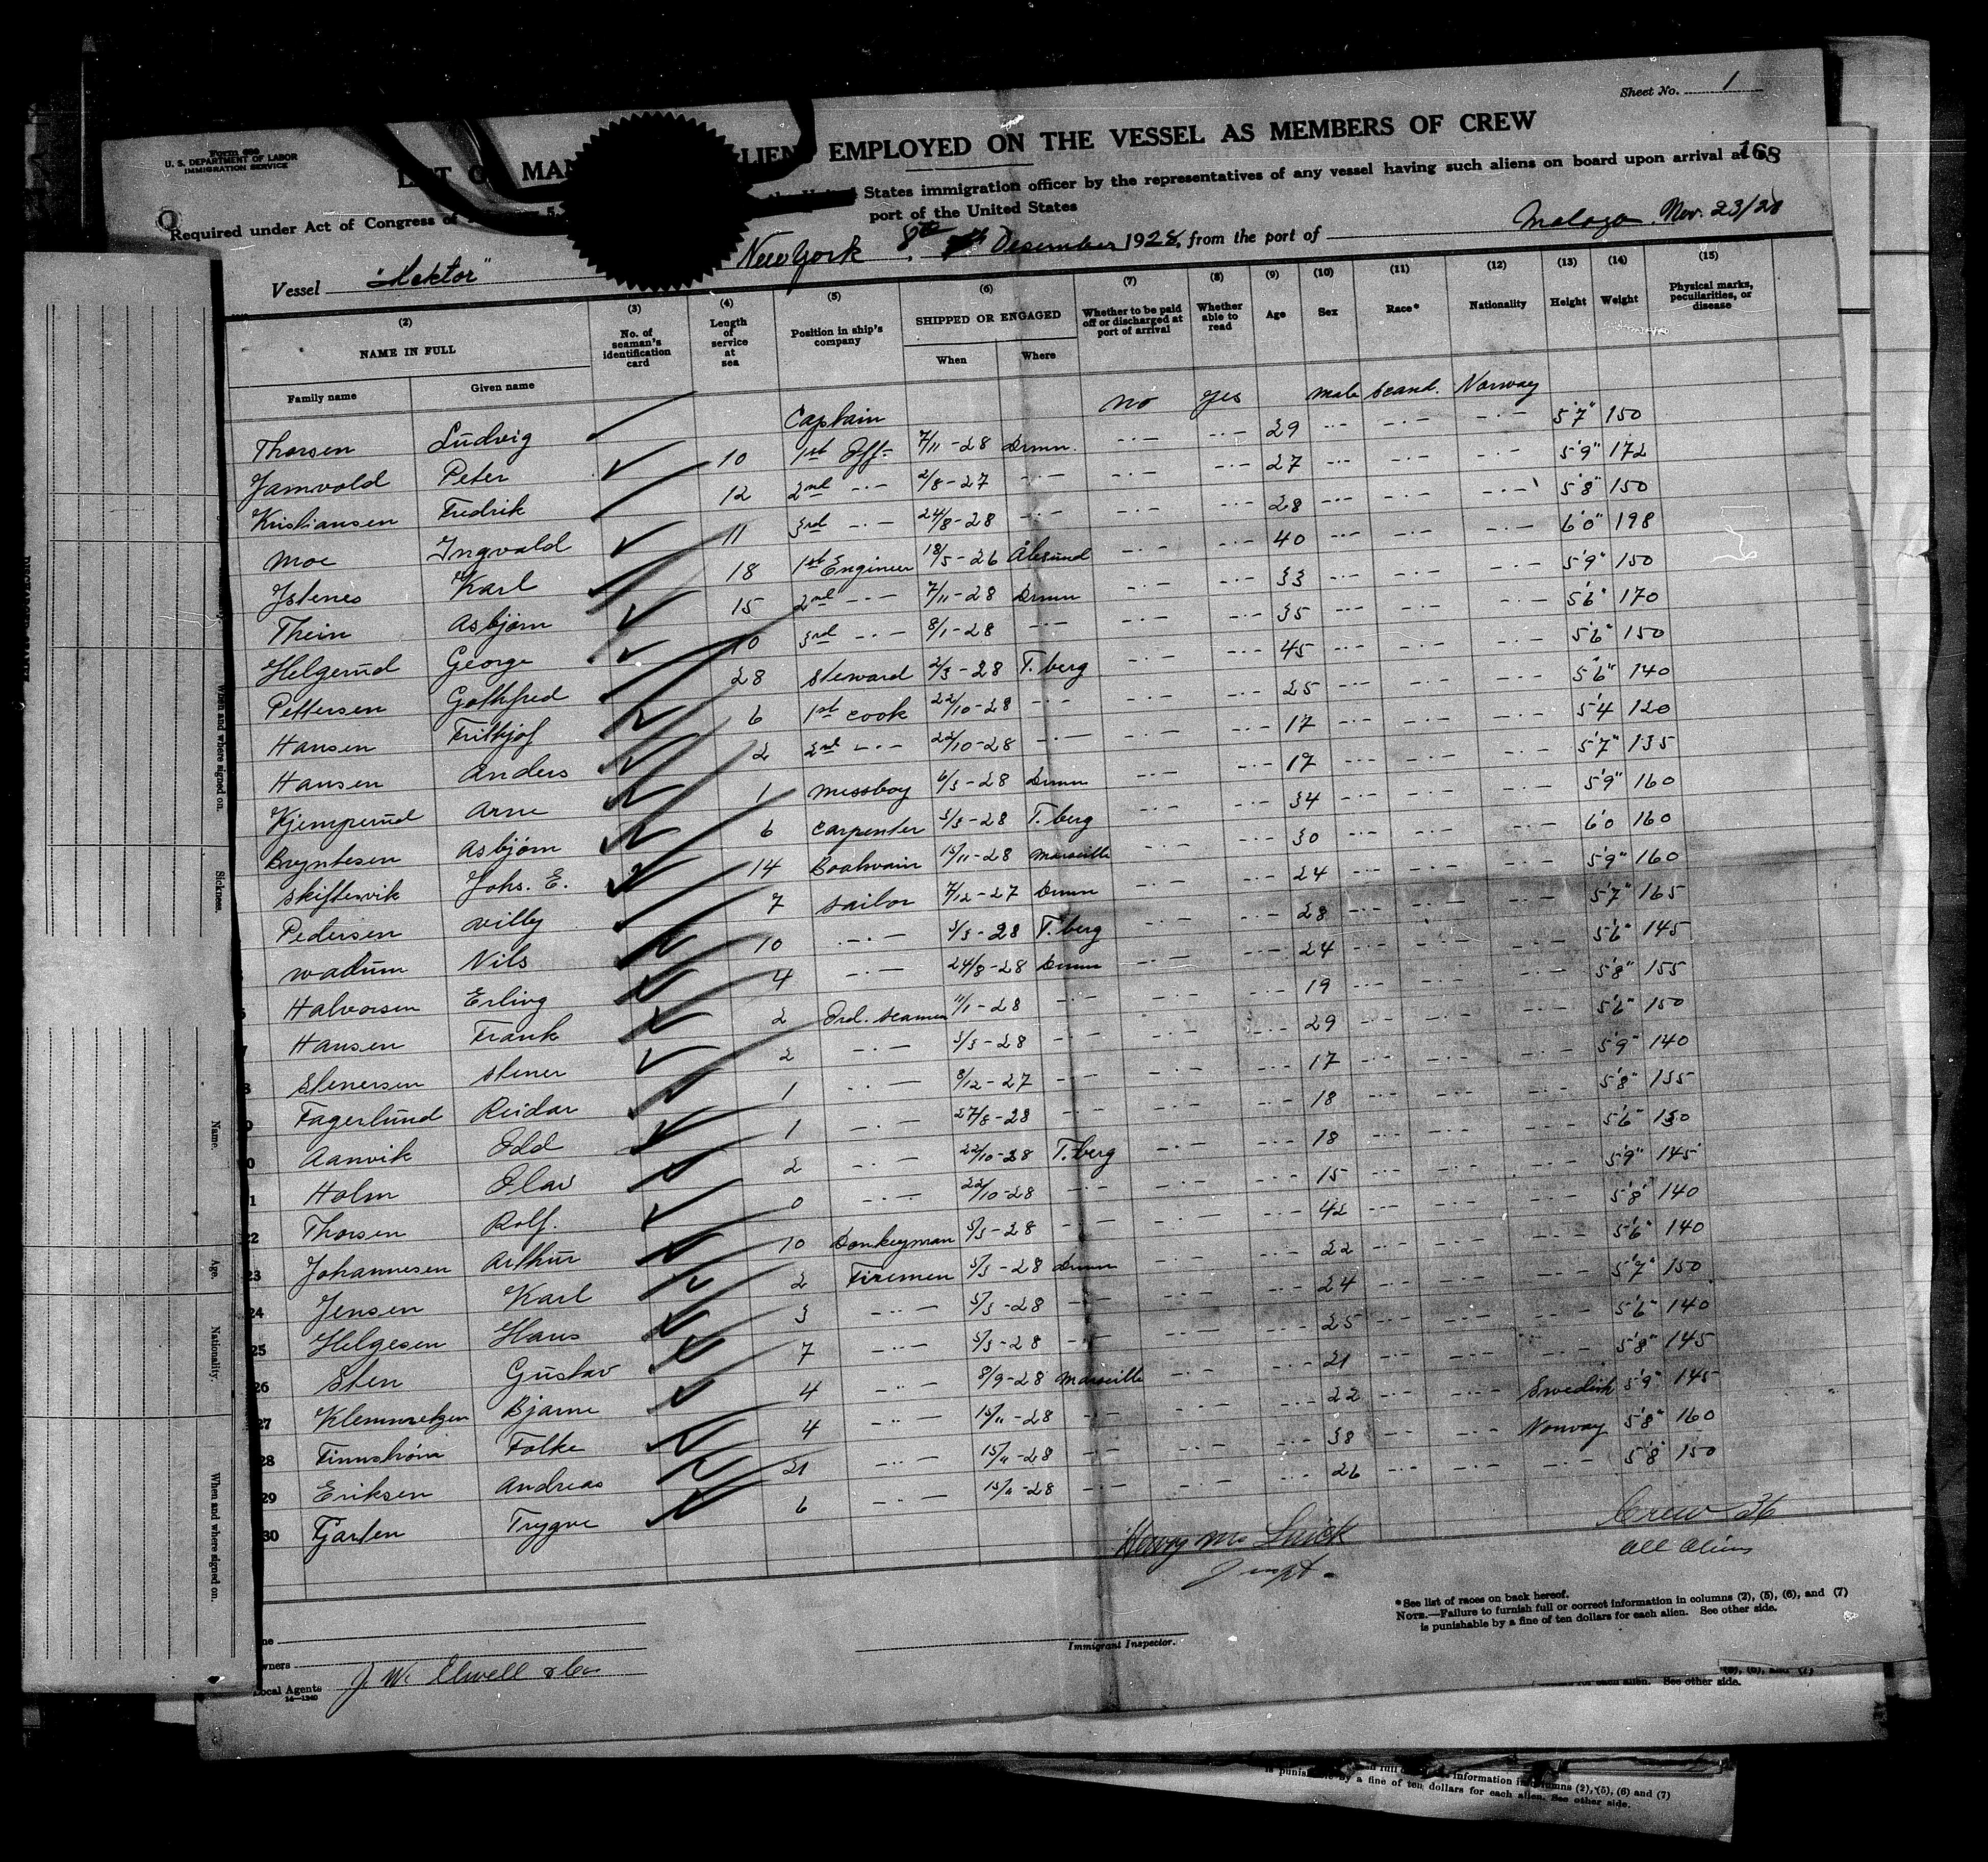 Sheet No. 1
168
Form 680
U. S. DEPARTMENT OF LABOR
IMMIGRATION SERVICE
EMPLOYED ON THE VESSEL AS MEMBERS OF CREW
Required under Act of Congress of
States immigration officer by the representatives of any vessel having such aliens on board upon arrival at a
port of the United States
Vessel "Hektor" New York 8th Desember 1928, from the port of Malaga. Nov. 23/28
(2) (3) (4) (5) (6) (7) (8) (9) (10) (11) (12) (13) (14) (15)
NAME IN FULL
Family name Given name
No. of seaman's identification card
Length of service at sea
Position in ship's company
SHIPPED OR ENGAGED
When Where
Whether to be paid off or discharged at port of arrival
Whether able to read
Age Sex Race* Nationality Height Weight
Physical marks, peculiarities, or disease
Thorsen Ludvig Captain no yes male scand. Norway
Jamvold Peter 10 1st Off. 7/11-28 Drmn. -.- -.- 29 -.- -.- -.- 5'7" 150
Kristiansen Fredrik 12 2nd -.- 2/8-27 -.- -.- -.- 27 -.- -.- -.- 5'9" 172
Moe Ingvald 11 3rd -.- 24/8-28 -.- -.- 28 -.- -.- -.- 5'8" 150
Istenes Karl 18 1st Engineer 18/5-26 Ålesund -.- -.- 40 -.- -.- -.- 6'0" 198
Thein Asbjørn 15 2nd -.- 7/11-28 Drmn -.- -.- 33 -.- -.- -.- 5'9" 150
Helgerud George 10 3rd -.- 8/1-28 -.- -.- -.- 35 -.- -.- -.- 5'6" 170
Pettersen Gothfred 28 Steward 2/3-28 T.berg -.- -.- 45 -.- -.- -.- 5'6" 150
Hansen Fritbjof 6 1st cook 22/10-28 -.- -.- 25 -.- -.- -.- 5'6" 140
Hansen Anders 2 2nd -.- 22/10-28 -.- -.- 17 -.- -.- -.- 5'4 120
Kjemperud Arne 1 Messboy 6/3-28 Drmn -.- -.- 17 -.- -.- -.- 5'7" 135
Bryntesen Asbjørn 6 Carpenter 5/3-28 T.berg -.- -.- 34 -.- -.- -.- 5'9" 160
Skiftesvik Johs. E. 14 Boatswain 15/11-28 Marseille -.- -.- 30 -.- -.- -.- 6'0 160
Pedersen Villy 7 Sailor 7/12-27 Drmn -.- -.- 24 -.- -.- -.- 5'9" 160
Wadum Nils 10 -.- 5/3-28 T.berg -.- -.- 28 -.- -.- -.- 5'7" 165
Halvorsen Erling 4 -.- 24/8-28 Drmn -.- -.- 24 -.- -.- -.- 5'6" 145
Hansen Frank 2 Ord. Seamen 11/1-28 -.- -.- -.- 19 -.- -.- -.- 5'8" 155
Stenersen Stener 2 -.- 5/3-28 -.- -.- -.- 29 -.- -.- -.- 5'6" 150
Fagerlund Reidar 1 -.- 8/12-27 -.- -.- -.- 17 -.- -.- -.- 5'9" 140
Aanvik Odd 1 -.- 27/8-28 -.- -.- -.- 18 -.- -.- -.- 5'8" 155
Holm Olav 2 -.- 22/10-28 T.berg -.- -.- 18 -.- -.- -.- 5'6" 130
22 Thorsen Rolf. 0 -.- 22/10-28 -.- -.- -.- 15 -.- -.- -.- 5'9" 145
23 Johannesen Arthur 10 Donkeyman 5/3-28 -.- -.- -.- 42 -.- -.- -.- 5'8" 140
24 Jensen Karl 2 Firemen 5/3-28 Drmn -.- -.- 22 -.- -.- -.- 5'6" 140
25 Helgesen Hans 3 -.- 5/3-28 -.- -.- -.- 24 -.- -.- -.- 5'7" 150
26 Sten Gustav 7 -.- 5/3-28 -.- -.- -.- 25 -.- -.- -.- 5'6" 140
27 Bjarne 4 -.- 8/9-28 Marseille -.- -.- 21 -.- -.- -.- 5'8" 145
28 Finnstrøm Folke 4 -.- 15/11-28 -.- -.- -.- 22 -.- -.- Swedish 5'9" 145
29 Eriksen Andreas 21 -.- 15/11-28 -.- -.- -.- 38 -.- -.- Norway 5'8" 160
30 Garten Trygve 6 -.- 15/11-28 -.- -.- 26 -.- -.- -.- 5'8 150
Crew 36
all aliens
Inspt.
Immigrant Inspector.
*See list of races on back hereof.
NOTE.—Failure to furnish full or correct information in columns (2), (5), (6), and (7)
is punishable by a fine of ten dollars for each alien. See other side.
Owners
Local Agents J. W. Elwell & Co.
14—1240
When and where signed on.
Sickness.
Name.
Age.
Nationality.
When and where signed on.
for each alien. See other side.
information in columns (2), (5), (6) and (7)
is punishable by a fine of ten dollars for each alien. See other side.